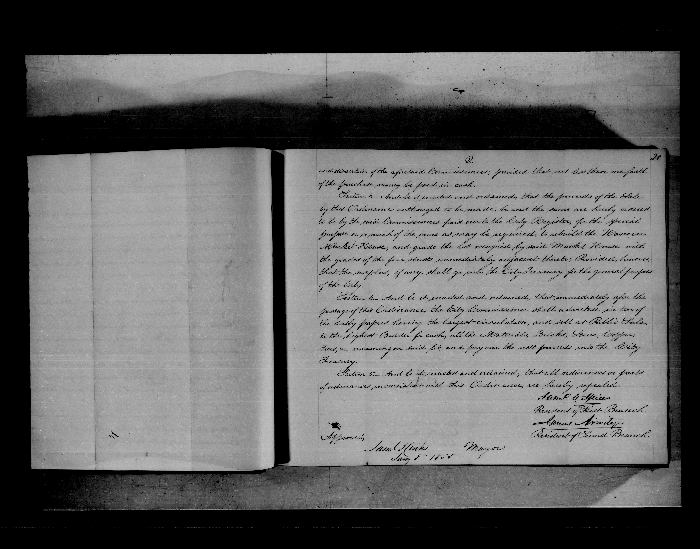 20
2.
of the aforesaid Commissioners, provided that not less than one fourth
of the purchase money be paid in cash.
Section And be it enacted and ordained, that the proceeds of the
by this Ordinance authorized to be made, be and the same are hereby
to be by the said Commissioners paid over to the City Register, for the special
purpose or so much of the same as may be required, to rebuild the Hanover
Market House, and grade the lot occupied by said Market House with
the grades of the four streets immediately adjacent thereto; Provided, however,
that the surplus, if any, shall go into the City Treasury for the general purposes
of the City.
Section And be it enacted and ordained, that immediately after the
passage of this Ordinance, the City Commissioner shall advertise, in two of
the daily papers having the largest circulation, and sell at Public Sale
to the highest Bidder for cash, all the Materials, Bricks, Iron,
remaining on said lot, and pay over the nett proceeds into the City
Treasury.
Section And be it enacted and ordained, that all ordinances or parts
of ordinances, inconsistent with this Ordinance, are hereby repealed.
President of First Branch
President of Second Branch.
Approved,
Saml Hinks Mayor